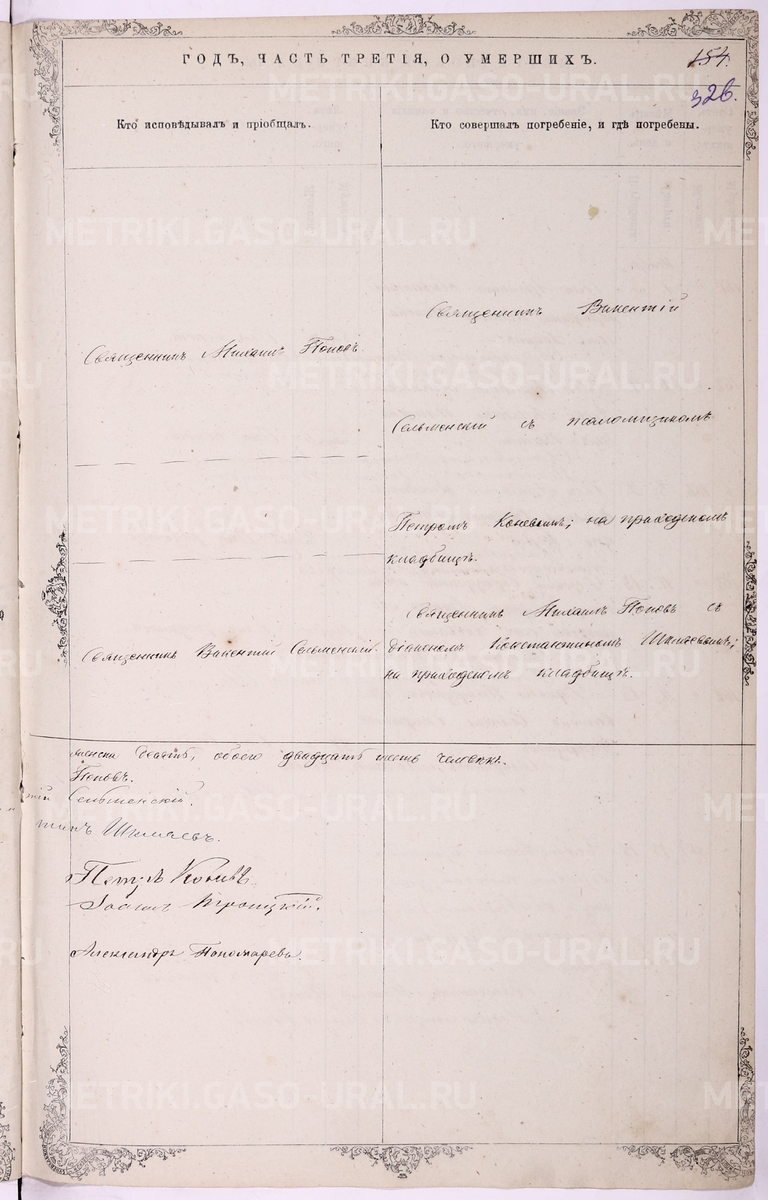 ГОДЪ, ЧАСТЬ ТРЕТІЯ, О УМЕРШИХЪ.
154.
326.
Кто исповѣдывалъ и пріобщалъ.
Кто совершалъ погребеніе, и гдѣ погребены.
Священникъ Михаилъ Поповъ
Священникъ Викентій
Сельменскій съ псаломщикомъ
Петромъ Коневымъ; на приходскомъ
кладбищѣ.
Священникъ Викентій Сельменскій.
Священникъ Михаилъ Поповъ съ
діакономъ Константиномъ
на приходскомъ кладбищѣ.
обоего двадцать шесть человѣкъ.
Поповъ.
тій Сельменскій.
Петръ Коневъ
Іоаннъ Троицкій.
Александръ Пономаревъ.
METRIKI.GASO-URAL.RU